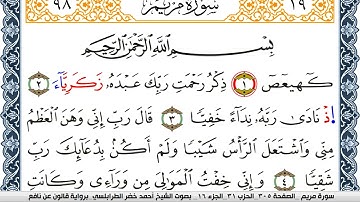 ٩٨ سُورَةُ مَرْيَمَ ١٩
بِسْمِ اللَّهِ الرَّحْمَٰنِ الرَّحِيمِ
كَهيعَصَ ١ ذِكْرُ رَحْمَتِ رَبِّكَ عَبْدَهُ زَكَرِيَّآءَ ٢
اِ۪ذْ نَادَىٰ رَبَّهُ نِدَآءً خَفِيّاً ٣ قَالَ رَبِّ إِنِّي وَهَنَ الْعَظْمُ
مِنِّي وَاشْتَعَلَ الرَّأْسُ شَيْباً وَلَمْ أَكُنْ بِدُعَآئِكَ رَبِّ
شَقِيّاً ٤ وَإِنِّي خِفْتُ الْمَوَٰلِيَ مِنْ وَرَآءِي وَكَانَتِ
سورة مريم الصفحة ٣٠٥ الحزب ٣١ الجزء ١٦ بصوت الشيخ أحمد خضر الطرابلسي برواية قالون عن نافع